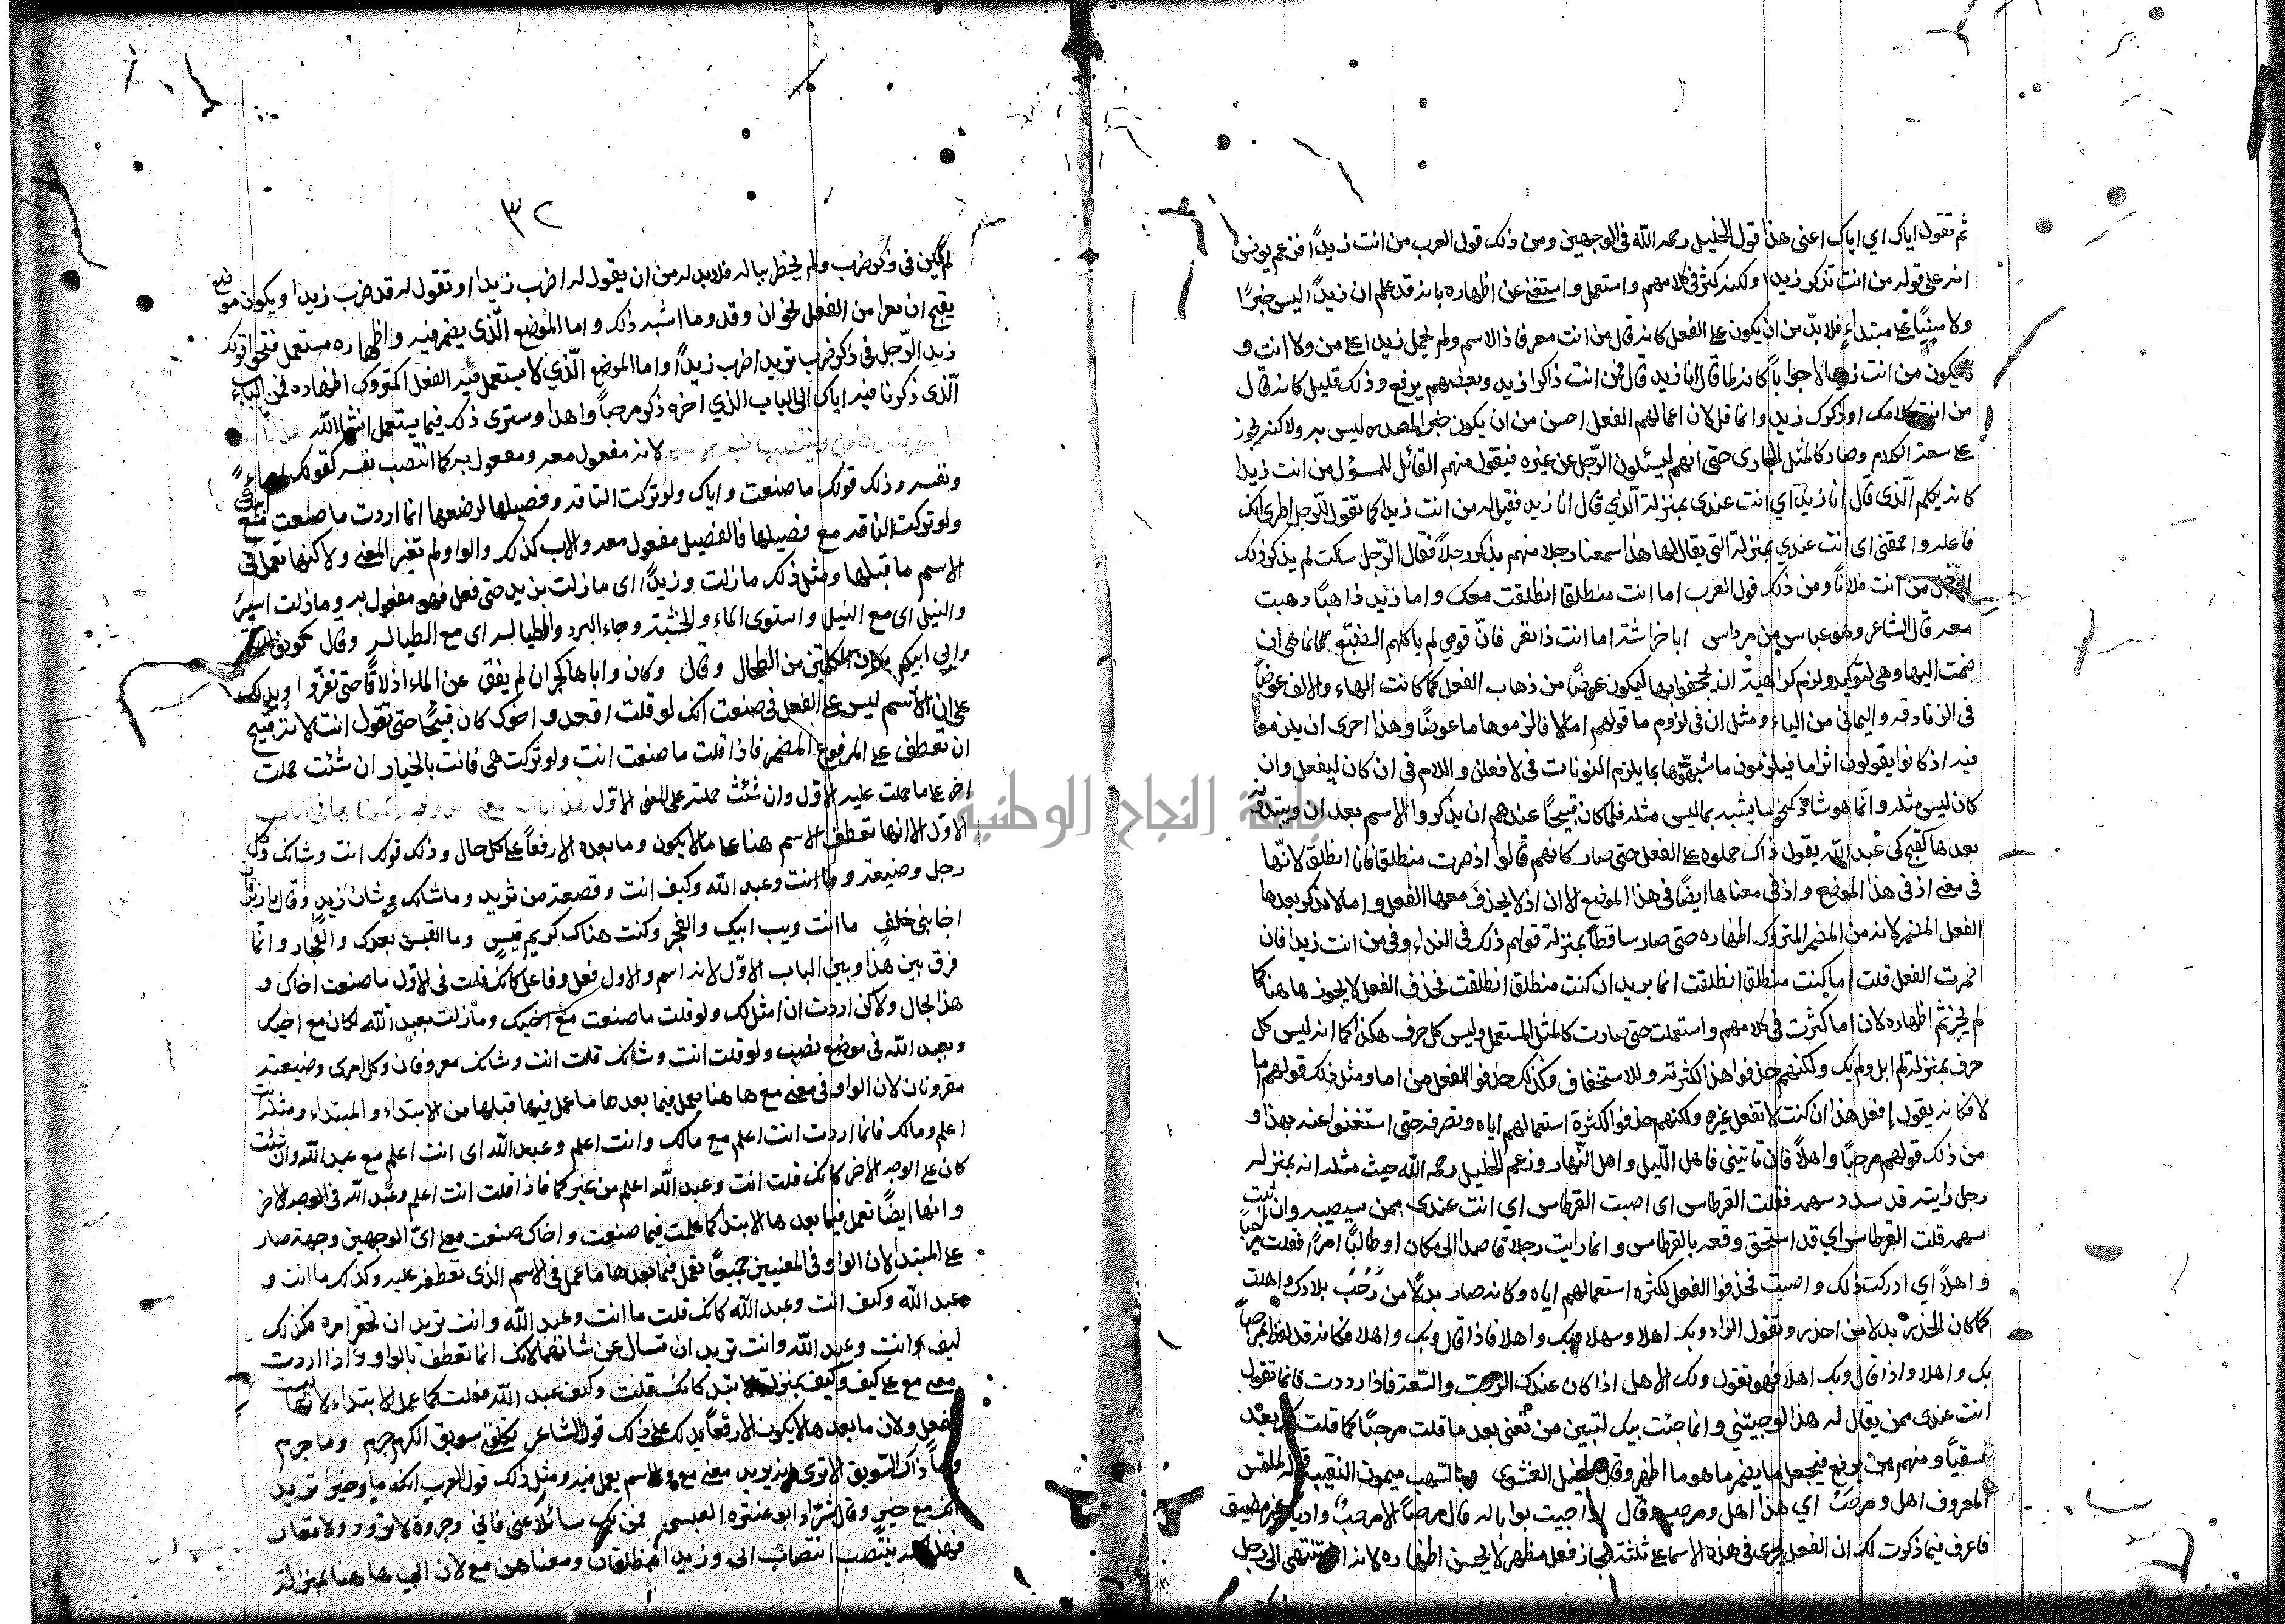 ثم تقول اياك اي اياك اعنى هذا قول الخليل رحمه الله فى الوجهين ومن ذلك قول العرب من انت زيدًا فزعم يونس
انه على قوله من انت تذكر زيدا ولكنه كثر فى كلامهم واستعمل واستغنى عن اظهاره بانه قد علم ان زيدًا ليس خبرًا
ولا مبنيًا على مبتداءٍ فلا بدّ من ان يكون على الفعل كانه قال من انت معرفا ذا الاسم ولم يحمل زيدا على من ولا انت و
يكون من انت زيدا الا جوابًا كانه لما قال انا زيد قال فمن انت ذاكرا زيد وبعضهم يرفع وذلك قليل كانه قال
من انت كلامك او ذكرك زيد وانما قل لان اعمالهم الفعل احسن من ان يكون خبر المصدر ليس به ولاكنه يجوز
على سعة الكلام وصار كالمثل الجارى حتى انهم ليسئلون الرّجل عن غيره فيقول منهم القائل للمسؤل من انت زيدا
كانه يكلم الّذى قال انا زيد اي انت عندى بمنزلة الّذي قال انا زيد فقيل له من انت زيدا كما تقول للرّجل اطرى انك
فاعله واحمقنى اى انت عندي بمنزلة التى يقال لها هذا سمعنا رجلا منهم يذكر رجلاً فقال الرّجل ساكت لم يذكر ذلك
الرجل من انت فلانًا ومن ذلك قول العرب اما انت منطلقا انطلقت معك واما زيد ذاهبًا ذهبت
معه قال الشاعر وهو عباس بن مرداس ابا خراشة اما انت ذا نفر فانّ قومي لم ياكلهم الضبع فانما هى ان
ضمت اليها وهى لتوكيد ولزم كراهية ان يجحفوا بها ليكون عوضًا من ذهاب الفعل كما كانت الهاء والالف عوضًا
فى الزنادقه واليمانى من الياء ومثل ان فى لزوم ما قولهم امالا فالزموها ما عوضًا وهذا احرى ان يلزموا
فيه اذ كانوا يقولون اثرا ما فيلزمون ما شبهوها بما يلزم النونات فى لافعلن واللام فى ان كان ليفعل وان
كان ليس مثله وانّما هو شاذ كنحو ما يشبه بما ليس مثله فلما كان قبيحًا عندهم ان يذكروا الاسم بعد ان ويبتدؤه
بعدها كقبح كى عبد الله يقول ذاك حملوه على الفعل حتى صار كانهم قالوا اذ صرت منطلقا فانا انطلق لانّها
فى معنى اذ فى هذا الموضع واذ فى معناها ايضًا فى هذا الموضع الا ان اذ لا يحذف معها الفعل واما لا يذكر بعدها
الفعل المضمر لانه من المضمر المتروك اظهاره حتى صار ساقطًا بمنزلة قولهم ذلك فى النداء وفى من انت زيدا فان
اضمرت الفعل قلت اما كنت منطلقا انطلقت انما يريد ان كنت منطلقا انطلقت فحذف الفعل لا يجوز هاهنا كما
لم يجز ثم اظهاره لان اما كثرت فى كلامهم واستعملت حتى صارت كالمثل المستعمل وليس كل حرف هكذا كما انه ليس كل
حرف بمنزلة لم ابل ولم يك ولكنهم حذفوا هذا لكثرته وللاستخفاف وكذلك حذفوا الفعل من اما ومثل ذلك قولهم اما
لا فكانه يقول افعل هذا ان كنت لا تفعل غيره ولكنهم حذفوا لكثرة استعمالهم اياه وتصرفه حتى استغنوا عنه بهذا و
من ذلك قولهم مرحبًا واهلاً فان تاتينى فاهل اللّيل واهل النّهار وزعم الخليل رحمه الله حيث مثله انه بمنزله
رجل رايته قد سدد سهمه فقلت القرطاس اى اصبت القرطاس اى انت عندى ممن سيصيبه وان ثبت
سهمه قلت القرطاس اي قد استحق وقعه بالقرطاس وانما رايت رجلا قاصدا الى مكان او طالبًا امرًا فقلت مرحبًا
واهلاً اي ادركت ذلك واصبت فحذفوا الفعل لكثره استعمالهم اياه وكانه صار بدلًا من رَحُبَت بلادك واهلت
كما كان الحذر بدلا من احذر وتقول الراد وبك اهلا وسهلا وبك واهلا فاذا قال وبك واهلا فكانه قد لفظ بمرحبًا
بك واهلا واذا قال وبك اهلاً فهو تقول ولك الاهل اذا كان عندك الرحب والسّعة فاذا رددت فانما تقول
انت عندى ممن يقال له هذا لو جيتنى وانما جئت ببك لتبين من تعنى بعد ما قلت مرحبًا كما قلت لك بعد
سقيًا ومنهم من يرفع فيجعل ما يضمر ما هو ما اظهر وقال طفيل الغنوى وبالسهب ميمون النقيبة قوله لملتمس
المعروف اهل ومرحبٌ اي هذا اهل ومرحب وقال اذا جيت بوابا له قال مرحبًا الا مرحبٌ واديك غير مضيق
فاعرف فيما ذكرت لك ان الفعل يجرى فى هذه الاسما على ثلثة مجاز فعل مظهر لا يحسن اظهاره لانه ان تنتهى الى رجل
٣٢
لم يكن فى ذكر ضرب ولم يخطر بباله فلا بد له من ان يقول له اضرب زيدا او تقول له قد ضرب زيدا ويكون موضع
يقبح ان تعرا من الفعل نحو ان وقد وما اشبه ذلك واما الموضع الّذى يضمر فيه واظهاره مستعمل فنحو قولك
زيد الرّجل فى ذكر ضرب تريد اضرب زيدًا واما الموضع الّذي لا يستعمل فيه الفعل المتروك اظهاره فمن الباب
الّذى ذكرنا فيه اياك الى الباب الذي اخره ذكر مرحبًا واهلا وسترى ذلك فيما يستعمل انشا الله
لانه مفعول معه ومفعول به كما انتصب نفسه كقولك امرءًا
ونفسه وذلك قولك ما صنعت واياك ولو تركت الناقة وفصيلها لرضعها انما اردت ما صنعت مع
ولو تركت الناقة مع فصيلها فالفصيل مفعول معه والاب كذلك والواو لم تغير المعنى ولاكنها تعمل فى
الاسم ما قبلها ومثل ذلك ما زلت وزيدًا اى ما زلت بزيد حتى فعل فهو مفعول به وما زلت اسير
والنيل اى مع النيل واستوى الماء والخشبة وجاء البرد والطيالسه اى مع الطيالسه وقال كونوا انتم
وابي ابيكم مكان الكليتين من الطحال وقال وكان واياها كحران لم يفق عن الماء اذ لاقا حتى تقدّدا ويدلك
على ان الاسم ليس على الفعل فى صنعت انك لو قلت اقعد واخوك كان قبيحًا حتى تقول انت لانه قبيح
ان تعطف على المرفوع المضمر فاذا قلت ما صنعت انت ولو تركت هى فانت بالخيار ان شئت حملت
اخر على ما حملت عليه الاوّل وان شئت حملته على المعنى الاوّل
الاوّل الا انها تعطف الاسم هنا على ما لا يكون وما بعده الا رفعًا على كل حال وذلك قولك انت وشانك وكل
رجل وضيعته وما انت وعبد الله وكيف انت وقصعة من ثريد وما شانك وشان زيد وقال يا زبرقان
اخا بنى خلف ما انت ويب ابيك والفخر وكنت هناك كريم قيس وما القيسى بعدك والفخار وانّما
فرق بين هذا وبين الباب الاوّل لانه اسم والاول فعل وفاعل كانك قلت فى الاوّل ما صنعت اخاك و
هذا محال ولاكن اردت ان امثل لك ولو قلت ما صنعت مع اخيك وما زلت بعبد الله لكان مع اخيك
وبعبد الله فى موضع نصب ولو قلت انت وشانك قلت انت وشانك معروفان وكل امرى وضيعته
مقرونان لان الواو فى معنى مع هاهنا يعمل فيما بعدها ما عمل فيها قبلها من الابتداء والمبتداء ومثله انت
اعلم ومالك فانما اردت انت اعلم مع مالك وانت اعلم وعبد الله اى انت اعلم مع عبد الله وان شئت
كان على الوجه الاخر كانك قلت انت وعبد الله اعلم من غيركما فاذا قلت انت اعلم وعبد الله فى الوجه الاخر
وانها ايضًا تعمل فيما بعدها الابتدا كما عملت فيما صنعت واخاك صنعت فعلى اىّ الوجهين وجهته صار
على المبتدا لان الواو فى المعنيين جميعًا تعمل فيما بعدها ما عمل فى الاسم الذى تعطفه عليه وكذلك ما انت و
عبد الله وكيف انت وعبد الله كانك قلت ما انت وعبد الله وانت تريد ان تحقر امره وكذلك
كيف انت وعبد الله وانت تريد ان تسال عن شانهما لانك انما تعطف بالواو واذا اردت
معنى مع على كيف وكيف بمنزلة الابتدا كانك قلت وكيف عبد الله فعلت كما عمل الابتداء لانها ليست
بفعل ولان ما بعدها لا يكون الا رفعًا يدلك على ذلك قول الشاعر تكلفنى سويق الكرم جرم وما جرم
وما ذاك السّويق الا ترى انه يريد معنى مع والاسم يعمل فيه ومثل ذلك قول العرب انك ما وخيرا تريد
انك مع خير وقال شدّاد ابو عنتره العبسى فمن يك سائلاً عنى فانى وجروة لا ترود ولا تعار
فهذا كله ينتصب انتصاب انى وزيدا منطلقان ومعناهن مع لان انى هاهنا بمنزلة